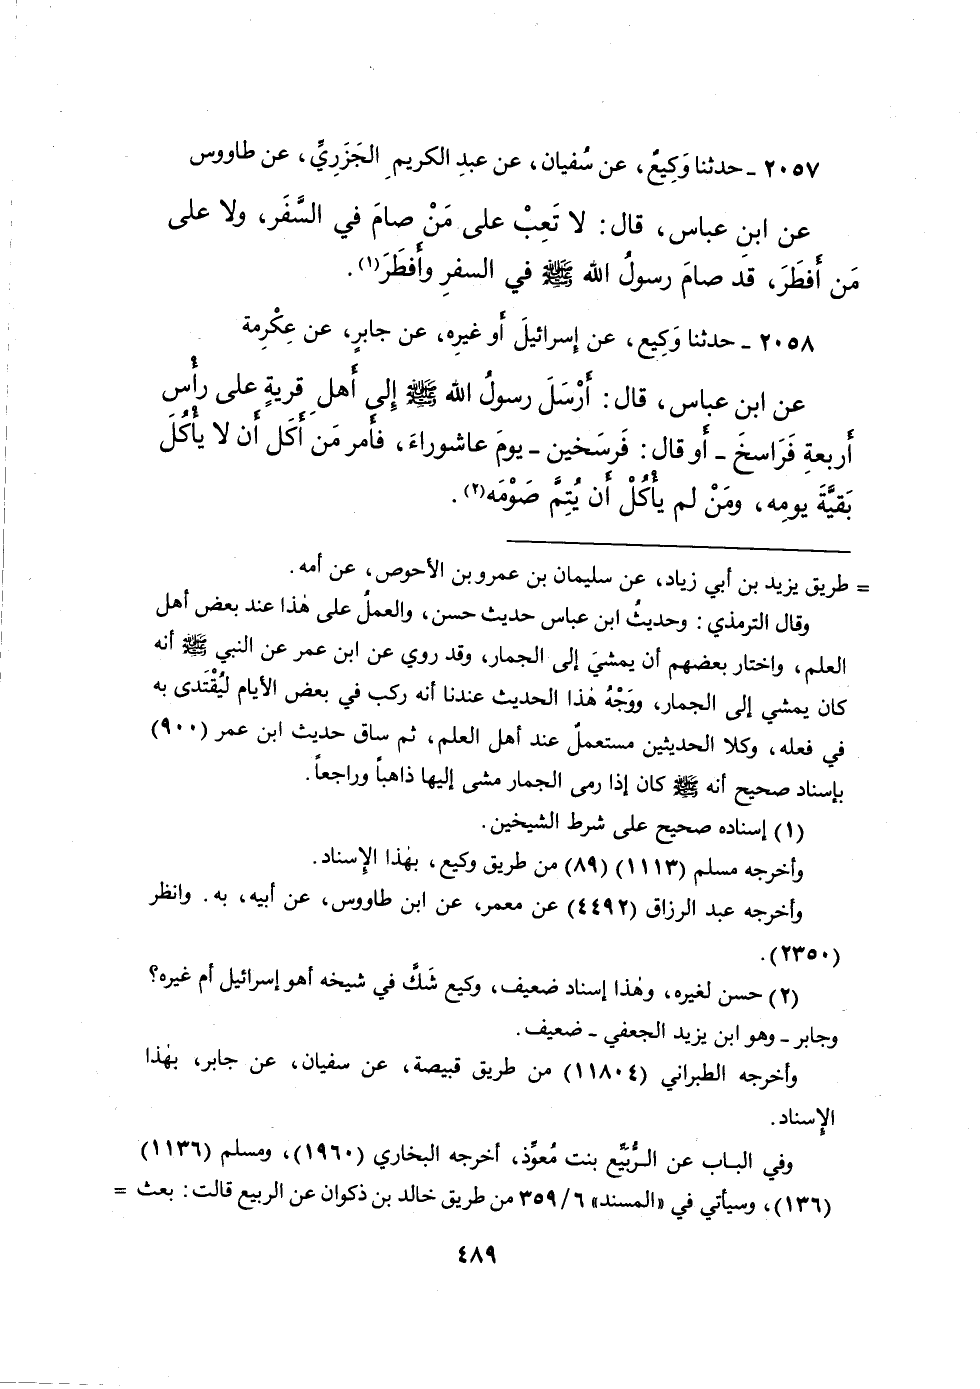 ٢٠٥٧ ـ حدثنا وَكِيعٌ، عن سُفيان، عن عبدِ الكريمِ الجَزَرِيِّ، عن طاووس
عن ابنِ عباس، قال: لا تَعِبْ على مَنْ صامَ في السَّفَر، ولا على
مَن أَفطَرَ، قد صامَ رسولُ الله ﷺ في السفرِ وأَفطَرَ(١).
٢٠٥٨ ـ حدثنا وَكِيع، عن إسرائيلَ أَو غيرِه، عن جابرٍ، عن عِكْرِمة
عن ابن عباس، قال: أَرْسَلَ رسولُ الله ﷺ إِلى أَهلِ قريةٍ على رأْسِ
أَربعةِ فَرَاسخَ ـ أَو قال: فَرسَخين ـ يومَ عاشوراءَ، فأَمر مَن أَكَل أَن لا يأْكُلَ
بَقيَّةَ يومِه، ومَنْ لم يأْكُلْ أَن يُتِمَّ صَوْمَه(٢).
= طريق يزيد بن أبي زياد، عن سليمان بن عمرو بن الأحوص، عن أمه.
وقال الترمذي: وحديثُ ابن عباس حديث حسن، والعملُ على هٰذا عند بعض أهل
العلم، واختار بعضهم أن يمشيَ إلى الجمار، وقد روي عن ابن عمر عن النبي ﷺ أنه
كان يمشي إلى الجمار، ووَجْهُ هٰذا الحديث عندنا أنه ركب في بعض الأيام ليُقْتَدى به
في فعله، وكلا الحديثين مستعملٌ عند أهل العلم، ثم ساق حديث ابن عمر (٩٠٠)
بإسناد صحيح أنه ﷺ كان إذا رمى الجمار مشى إليها ذاهباً وراجعاً.
(١) إسناده صحيح على شرط الشيخين.
وأخرجه مسلم (١١١٣) (٨٩) من طريق وكيع، بهٰذا الإسناد.
وأخرجه عبد الرزاق (٤٤٩٢) عن معمر، عن ابن طاووس، عن أبيه، به. وانظر
(٢٣٥٠).
(٢) حسن لغيره، وهٰذا إسناد ضعيف، وكيع شَكَّ في شيخه أهو إسرائيل أم غيره؟
وجابر ـ وهو ابن يزيد الجعفي ـ ضعيف.
وأخرجه الطبراني (١١٨٠٤) من طريق قبيصة، عن سفيان، عن جابر، بهٰذا
الإسناد.
وفي الباب عن الرُّبَيِّع بنت مُعوِّذ، أخرجه البخاري (١٩٦٠)، ومسلم (١١٣٦)
(١٣٦)، وسيأتي في «المسند» ٣٥٩/٦ من طريق خالد بن ذكوان عن الربيع قالت: بعث =
٤٨٩